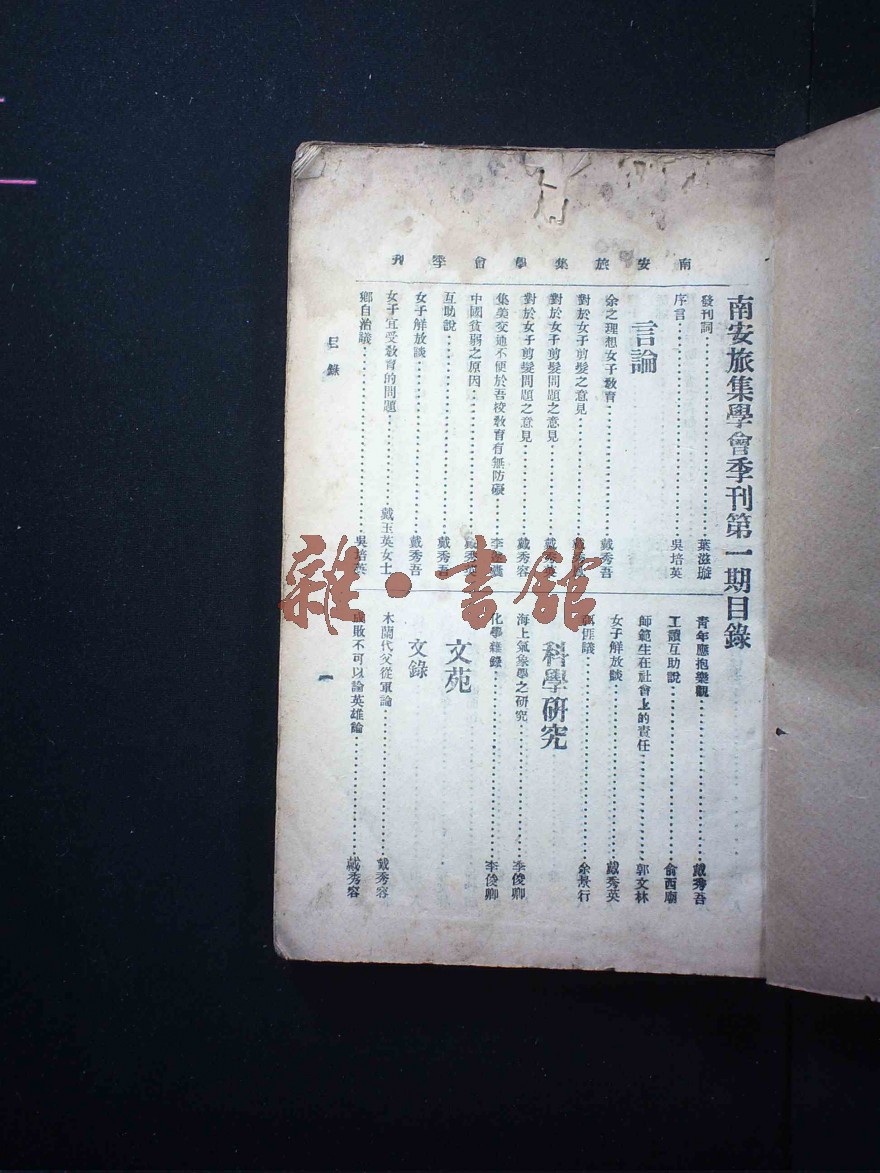 南安旅集學會季刊
南安旅集學會季刊第一期目錄
發刊詞 葉滋璇
序言 吳培英
言論
余之理想女子教育 戴秀吾
對於女子剪髮之意見
對於女子剪髮問題之意見
對於女子剪髮問題之意見 戴秀容
集美交通不便於吾校教育有無防礙
中國貧弱之原因
互助說 戴秀吾
女子解放談 戴秀吾
女子宜受教育的問題 戴玉英女士
鄉自治議 吳培英
青年應抱樂觀 戴秀吾
工讀互助說 俞西廟
師範生在社會上的責任 郭文林
女子解放談 戴秀英
匪議 余景行
科學研究
海上氣象學之研究 李俊卿
化學雜錄 李俊卿
文苑
文錄
木蘭代父從軍論 戴秀容
成敗不可以論英雄論 戴秀容
目錄
一
雜·書館